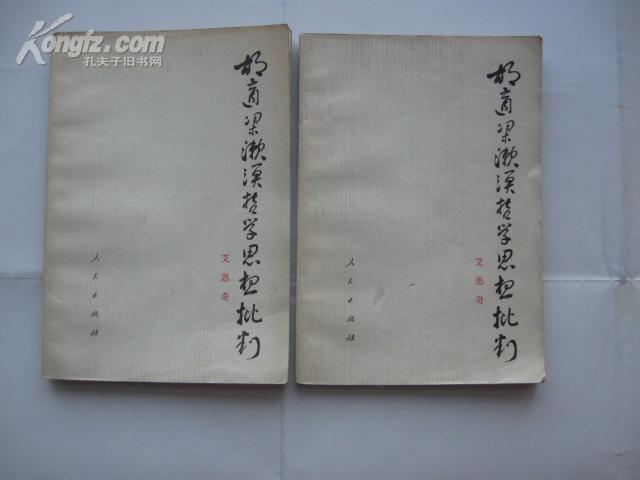 Kongfz.com
孔夫子旧书网
胡適梁漱溟哲学思想批判
艾思奇
人民出版社
胡適梁漱溟哲学思想批判
艾思奇
人民出版社